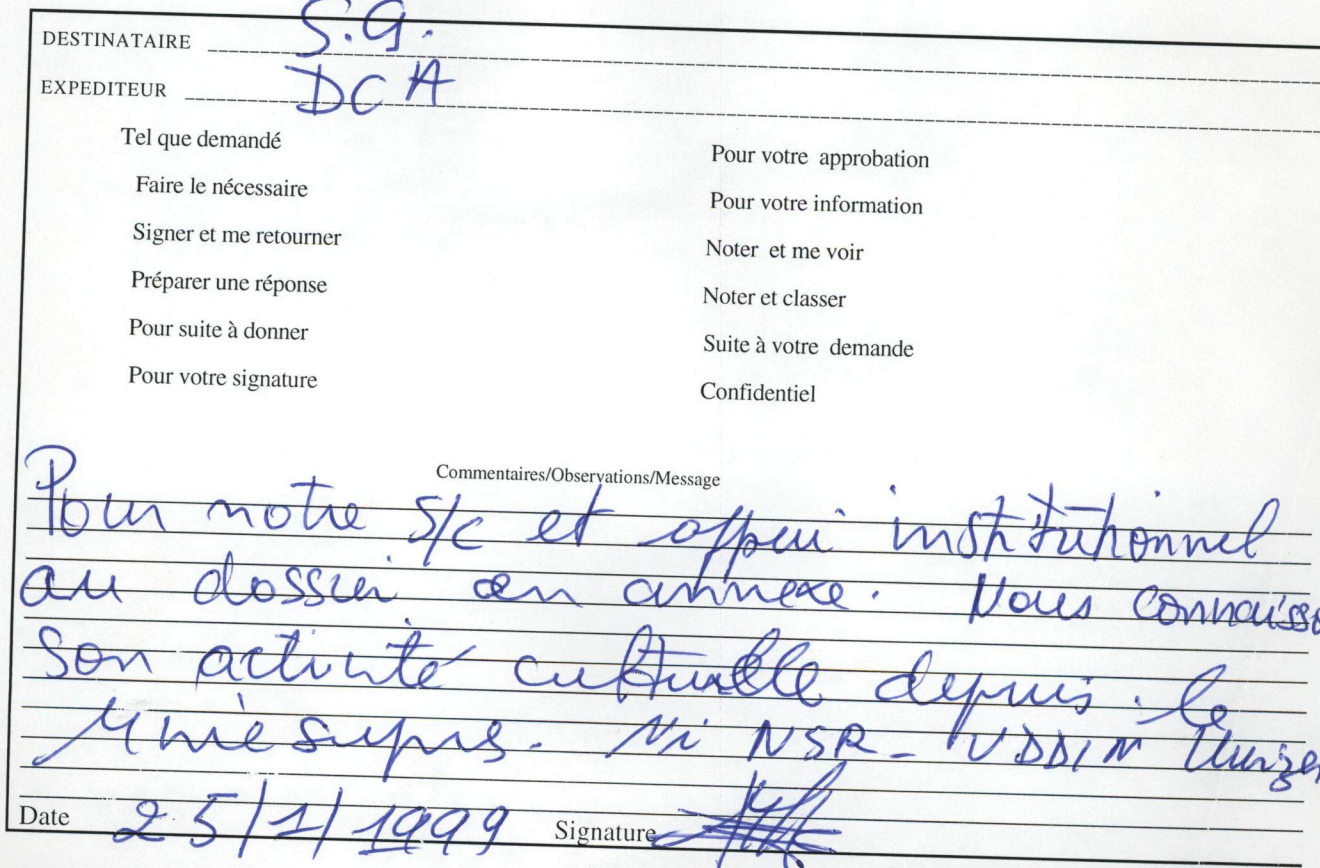 DESTINATAIRE S.G.
EXPEDITEUR DCA
Tel que demandé
Faire le nécessaire
Signer et me retourner
Préparer une réponse
Pour suite à donner
Pour votre signature
Pour votre approbation
Pour votre information
Noter et me voir
Noter et classer
Suite à votre demande
Confidentiel
Commentaires/Observations/Message
Pour notre S/C et appui institutionnel
au dossier en annexe. Nous connaisso
son activité culturelle depuis le
NSR - UDDIN
Date 25/1/1999 Signature